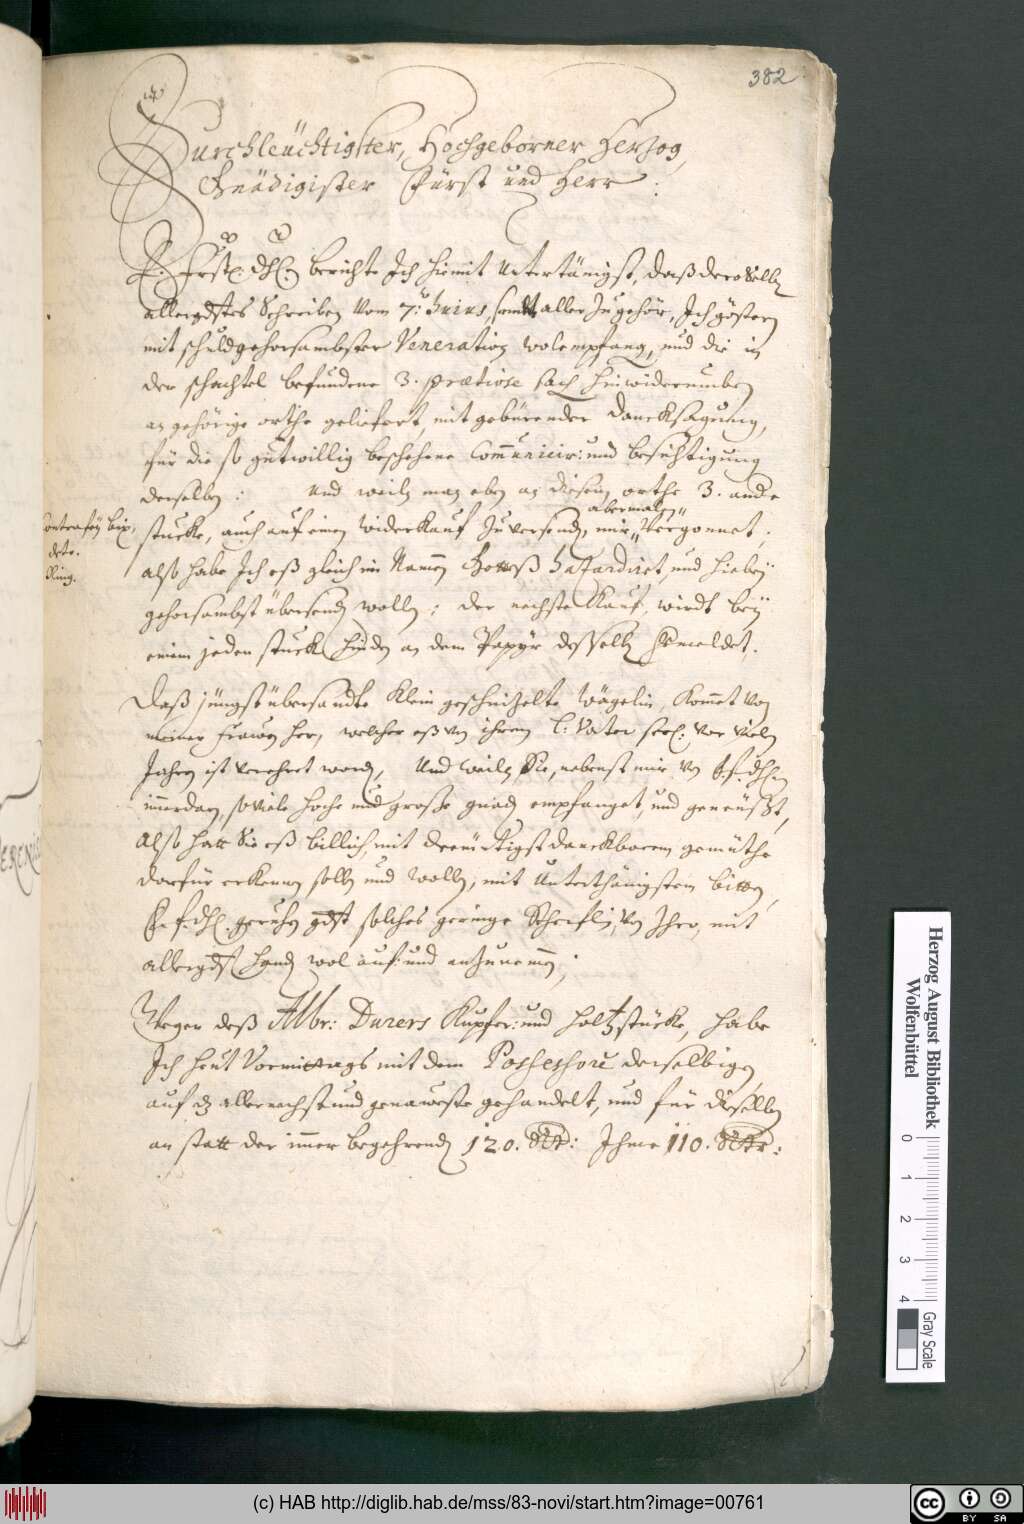 382
Durchleüchtigster, Hochgeborner Herzog,
Gnädigister Fürst und Herr:
E. Frstl. dhl. berichte Ich hiemit Untertänigst, daß dero Selben
allergdstes Schreiben vom 7. Junius, sambt aller Zugehör, Ich gestern
mit schuldgehorsambster Veneration wol empfang, und die in
der schachtel befundene 3. pretiose sach hinwiderumben
an gehörige orthe geliefert, mit gebürender Dancksagung,
für die so gutwillig beschehene Communicir: und besichtigung
derselben: Und weiln man eben an diesem orthe 3. andre
abermaln
stucke, auch auf einen widerkauf zu versenden, mir vergonnet:
Contrafey bix,
dete.
Ring.
also habe Ich eß gleich im Namen Gottes hazardiret, und hiebey
gehorsambst übersenden wollen; der nechste Kauf, wirdt bey
einem jeden stuck hinden an dem Papyr desselben gemeldet.
Daß jüngst übersandte klein geschnizelte wägelin, kommet von
meiner frawen her, welcher eß von ihrem l: Vater seel: vor vielen
Jahren ist verehret worden, Und weiln Sie, nebenst mir von E. f. dhl.
immerdar, so viele hohe und große gnaden empfanget, und geneüßt,
also hatt Sie eß billich, mit demütigst danckbarem gemüthe
darfür erkennen sollen und wollen, mit Unterthänigstem bitten,
E. f. dhl. geruhen gdst solches geringe Scherflin, von Ihro, mit
allergdst handen wol auf: und anzunemen;
Wegen deß Albr: Durers Kupfer: und holtzstücke, habe
Ich heut Vormittags mit dem Possessore derselbigen,
auf das allernechst und genaweste gehandelt, und für dieselben
an statt der immer begehrenden 120. Rthr: Ihme 110. Rthr:
Herzog August Bibliothek
Wolfenbüttel
0 1 2 3 4
Gray Scale
(c) HAB http://diglib.hab.de/mss/83-novi/start.htm?image=00761
cc BY SA